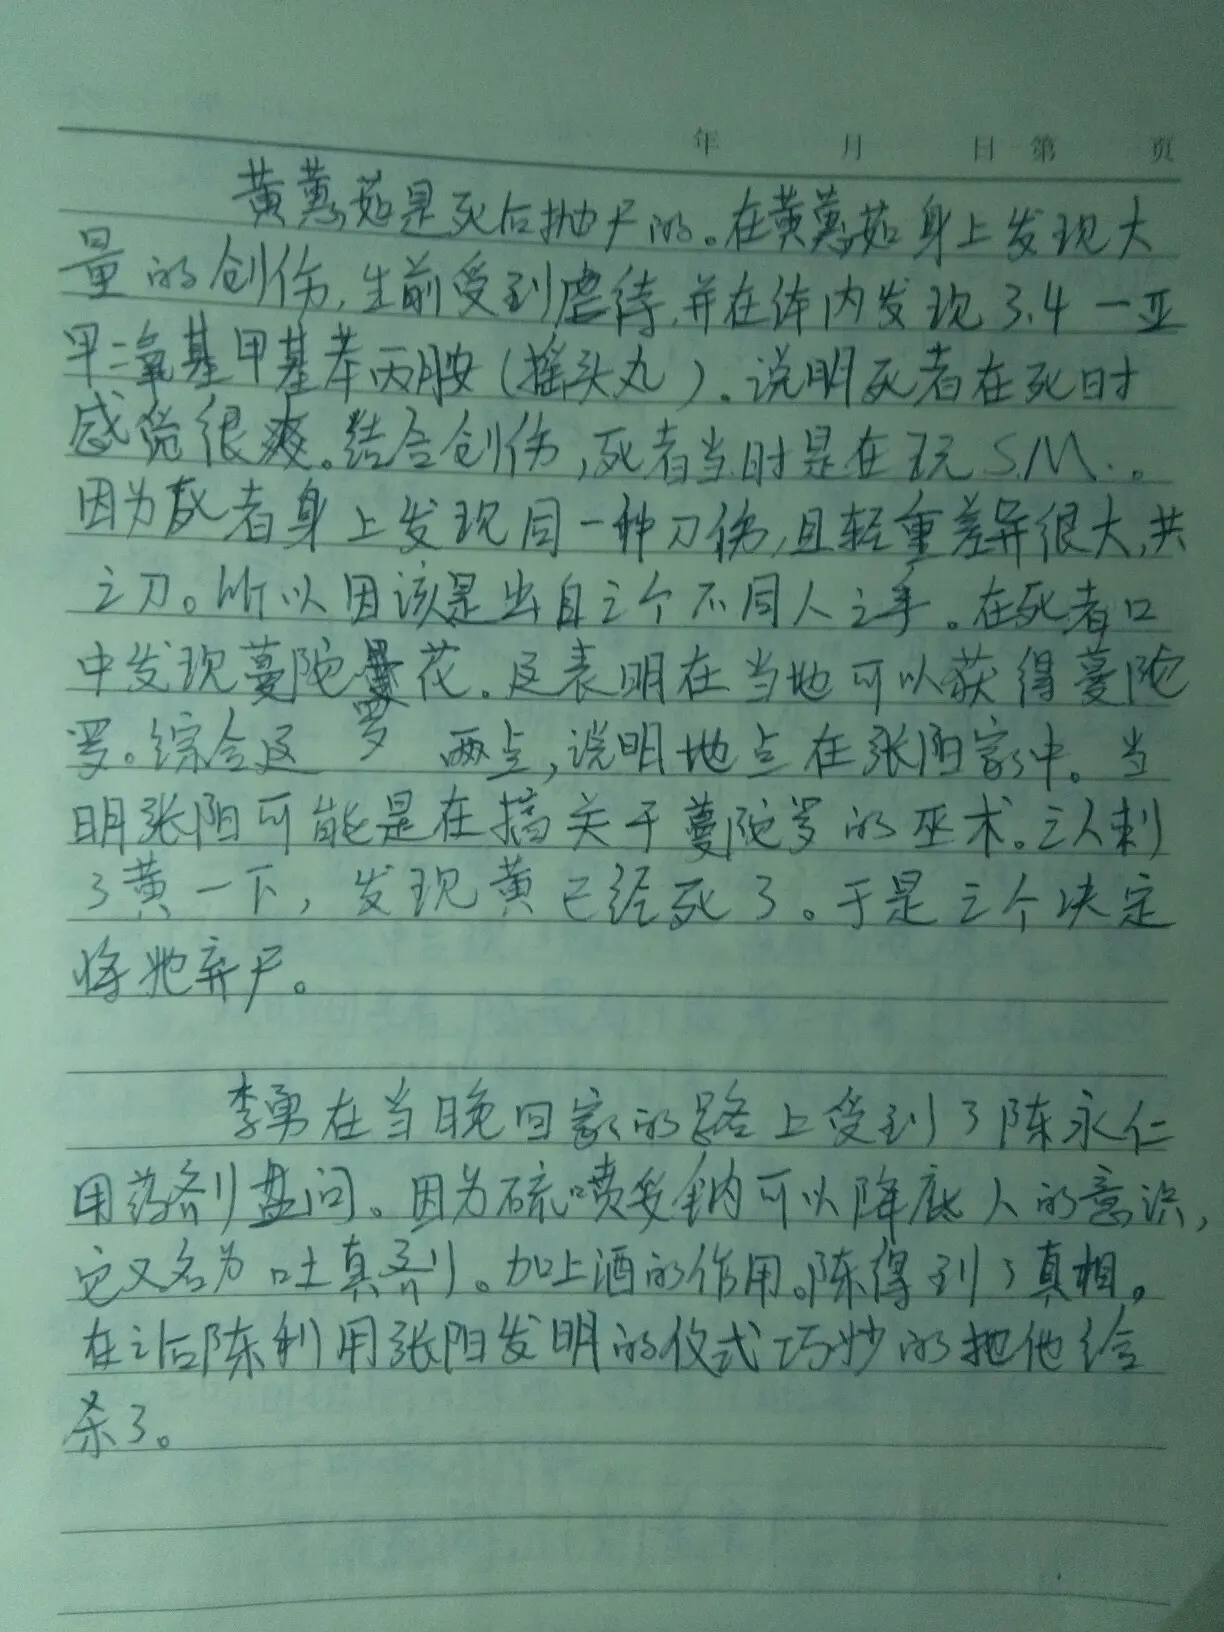 年 月 日 第 页
黄蕙茹是死后抛尸的。在黄蕙茹身上发现大
量的创伤,生前受到虐待,并在体内发现3.4一亚
甲二氧基甲基苯丙胺(摇头丸)。说明死者在死时
感觉很爽。结合创伤,死者当时是在玩S.M.。
因为死者身上发现同一种刀伤,且轻重差异很大,共
三刀。所以因该是出自三个不同人之手。在死者口
中发现蔓陀罗花。这表明在当地可以获得蔓陀
罗。综合这两点,说明地点在张阳家中。当
明张阳可能是在搞关于蔓陀罗的巫术。三人刺
了黄一下,发现黄已经死了。于是三个决定
将她弃尸。
李勇在当晚回家的路上受到了陈永仁
用药剂盘问。因为硫喷妥钠可以降底人的意识,
它又名为吐真剂。加上酒的作用。陈得到了真相。
在之后陈利用张阳发明的仪式巧妙的把他给
杀了。